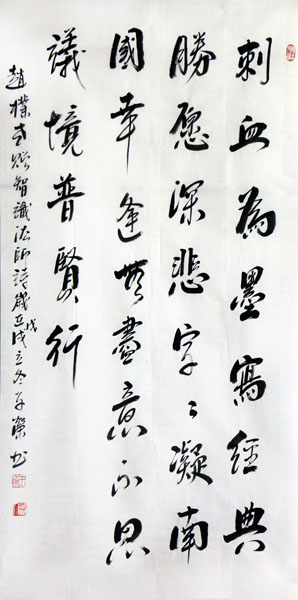 刺血為墨寫經典
勝愿深悲字々凝南
國幸逢無盡意不思
議境普賢行
趙樸老贈智識法師詩歲在戊戌立冬榮书